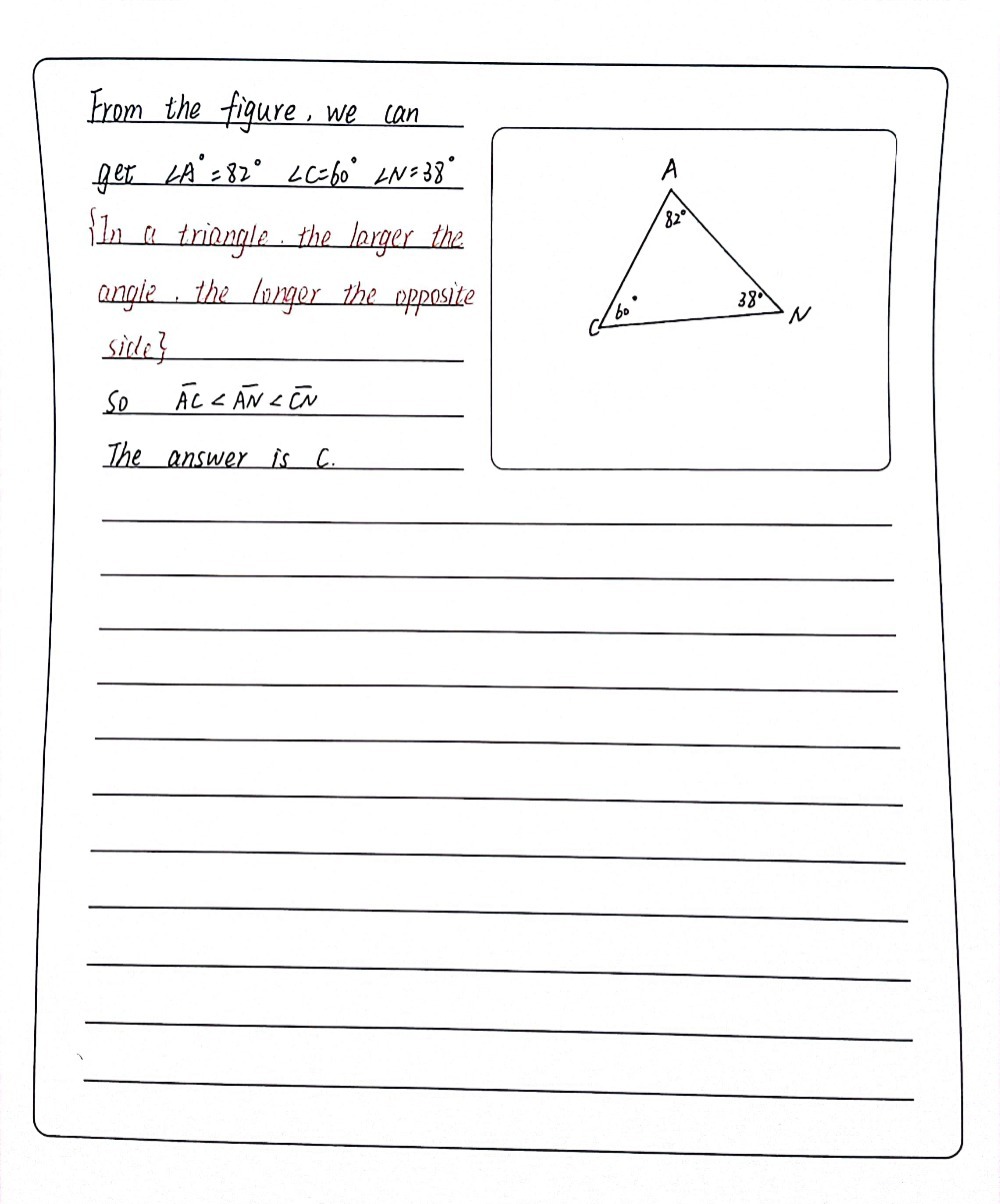 From the figure, we can
get ∠A° = 82° ∠C=60° ∠N=38°
{In a triangle. the larger the
angle. the longer the opposite
side}
So A̅C̅ < A̅N̅ < C̅N̅
The answer is C.
A
82°
60°
38°
C
N